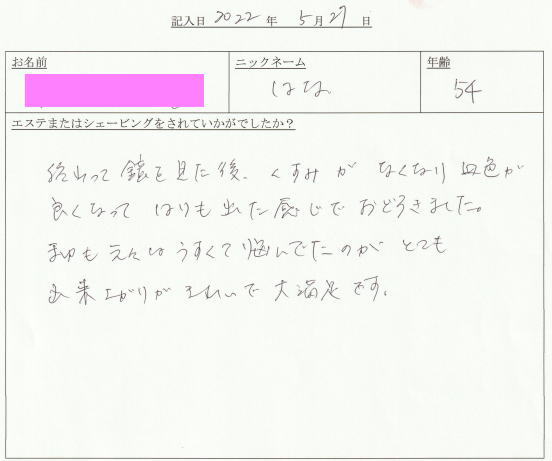 記入日 2022 年 5 月 27 日
お名前 ニックネーム 年齢
はな 54
エステまたはシェービングをされていかがでしたか?
終わって鏡を見た後、くすみがなくなり血色が
良くなって はりも出た感じで おどろきました。
まゆも元々はうすくて悩んでたのが とても
出来上がりがきれいで 大満足です。